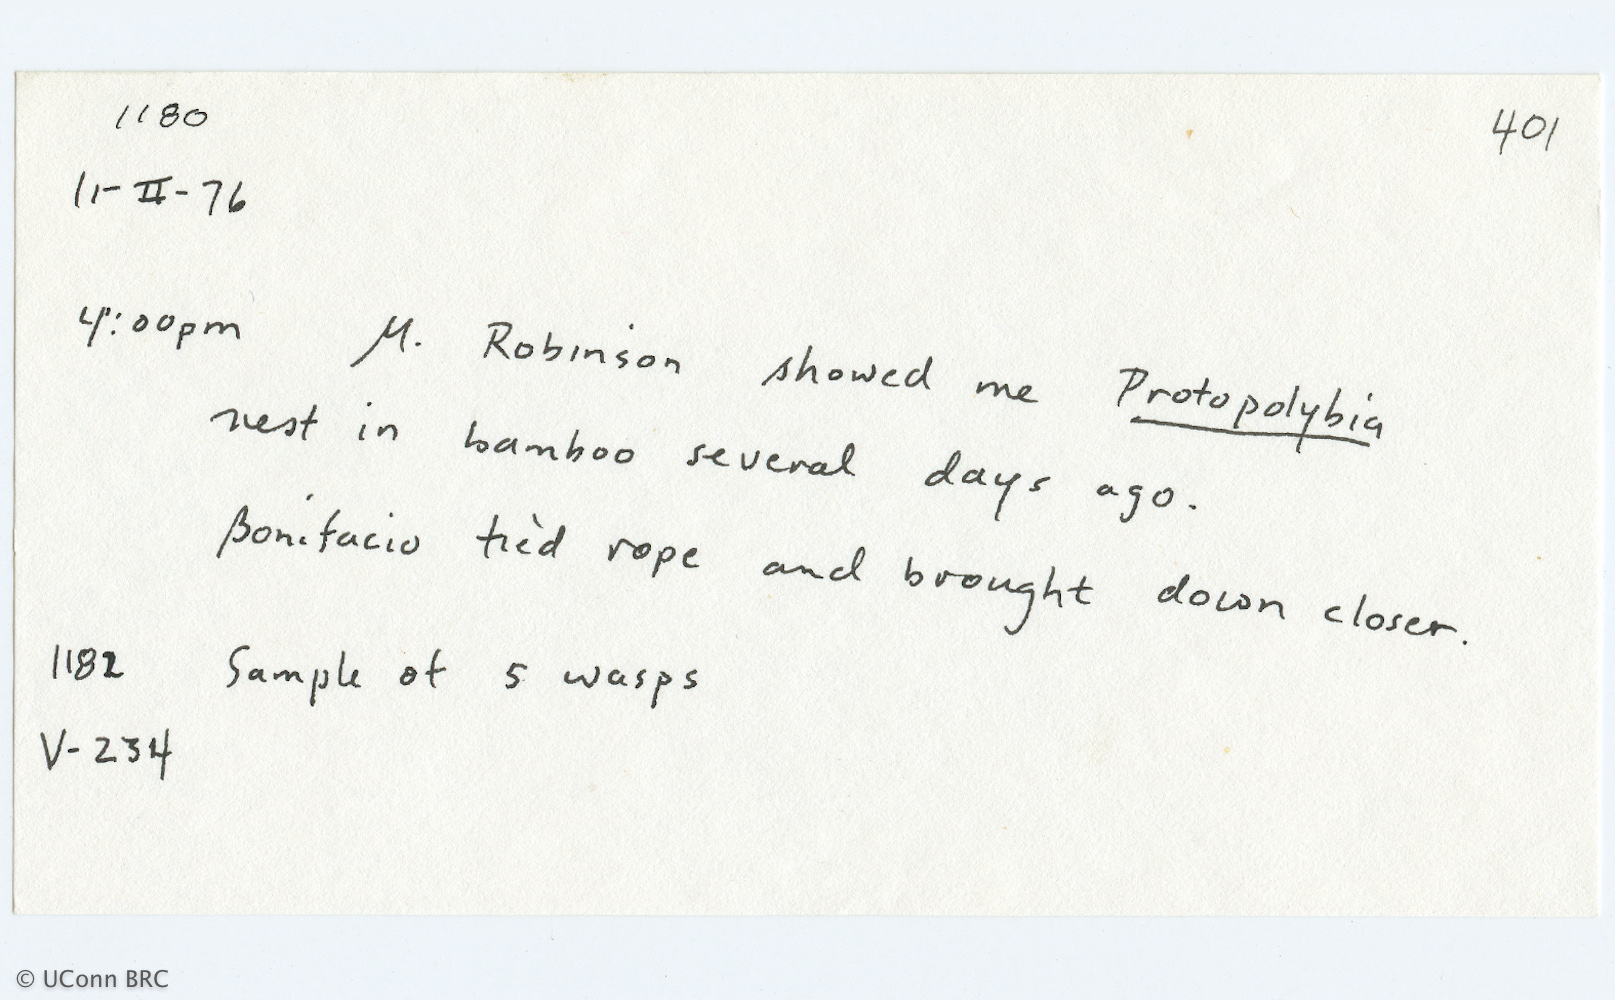 1180
401
11-II-76
4:00pm M. Robinson showed me Protopolybia
nest in bamboo several days ago.
Bonifacio tied rope and brought down closer.
1182 Sample of 5 wasps
V-234
© UConn BRC